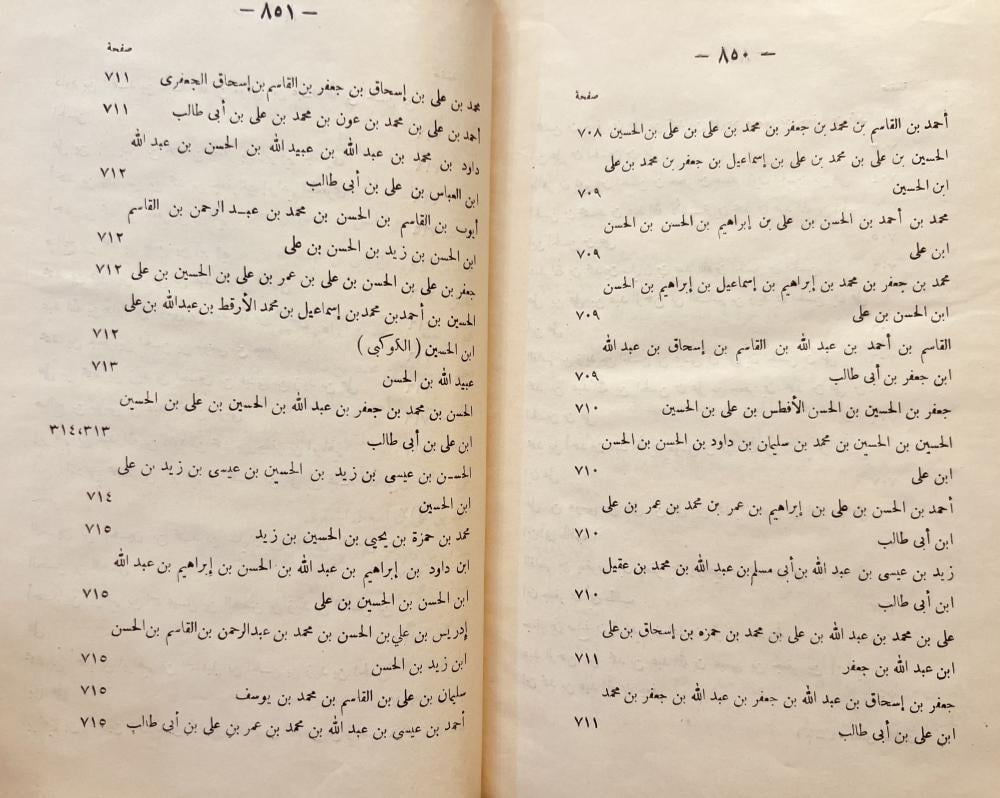 — ٨٥٠ —
صفحة
أحمد بن القاسم بن محمد بن جعفر بن محمد بن على بن على بن الحسين ٧٠٨
الحسين بن على بن محمد بن على بن إسماعيل بن جعفر بن محمد بن على
ابن الحسين ٧٠٩
محمد بن أحمد بن الحسن بن على بن إبراهيم بن الحسن بن الحسن
ابن على ٧٠٩
محمد بن جعفر بن محمد بن إبراهيم بن إسماعيل بن إبراهيم بن الحسن
ابن الحسن بن على ٧٠٩
القاسم بن أحمد بن عبد الله بن القاسم بن إسحاق بن عبد الله
ابن جعفر بن أبى طالب ٧٠٩
جعفر بن الحسين بن الحسن الأفطس بن على بن الحسين ٧١٠
الحسين بن الحسين بن محمد بن سليمان بن داود بن الحسن بن الحسن
ابن على ٧١٠
أحمد بن الحسن بن على بن إبراهيم بن عمر بن محمد بن عمر بن على
ابن أبى طالب ٧١٠
زيد بن عيسى بن عبد الله بن أبى مسلم بن عبد الله بن محمد بن عقيل
ابن أبى طالب ٧١٠
على بن محمد بن عبد الله بن على بن محمد بن حمزه بن إسحاق بن على
ابن عبد الله بن جعفر ٧١١
جعفر بن إسحاق بن عبد الله بن جعفر بن عبد الله بن جعفر بن محمد
ابن على بن أبى طالب ٧١١
— ٨٥١ —
صفحة
محمد بن على بن إسحاق بن جعفر بن القاسم بن إسحاق الجعفرى ٧١١
أحمد بن على بن محمد بن عون بن محمد بن على بن أبى طالب ٧١١
داود بن محمد بن عبد الله بن عبيد الله بن الحسن بن عبد الله
ابن العباس بن على بن أبى طالب ٧١٢
أيوب بن القاسم بن الحسن بن محمد بن عبد الرحمن بن القاسم
ابن الحسن بن زيد بن الحسن بن على ٧١٢
جعفر بن على بن الحسن بن على بن عمر بن على بن الحسين بن على ٧١٢
الحسين بن أحمد بن محمد بن إسماعيل بن محمد الأرقط بن عبد الله بن على
ابن الحسين ( الكوكبى ) ٧١٢
عبيد الله بن الحسن ٧١٣
الحسن بن محمد بن جعفر بن عبد الله بن الحسين بن على بن الحسين
ابن على بن أبى طالب ٣١٤،٣١٣
الحسن بن عيسى بن زيد بن الحسين بن عيسى بن زيد بن على
ابن الحسين ٧١٤
محمد بن حمزة بن يحيى بن الحسين بن زيد ٧١٥
ابن داود بن إبراهيم بن عبد الله بن الحسن بن إبراهيم بن عبد الله
ابن الحسن بن الحسين بن على ٧١٥
إدريس بن علي بن الحسن بن محمد بن عبد الرحمن بن القاسم بن الحسن
ابن زيد بن الحسن ٧١٥
سليمان بن على بن القاسم بن محمد بن يوسف ٧١٥
أحمد بن عيسى بن عبد الله بن محمد بن عمر بن على بن أبى طالب ٧١٥